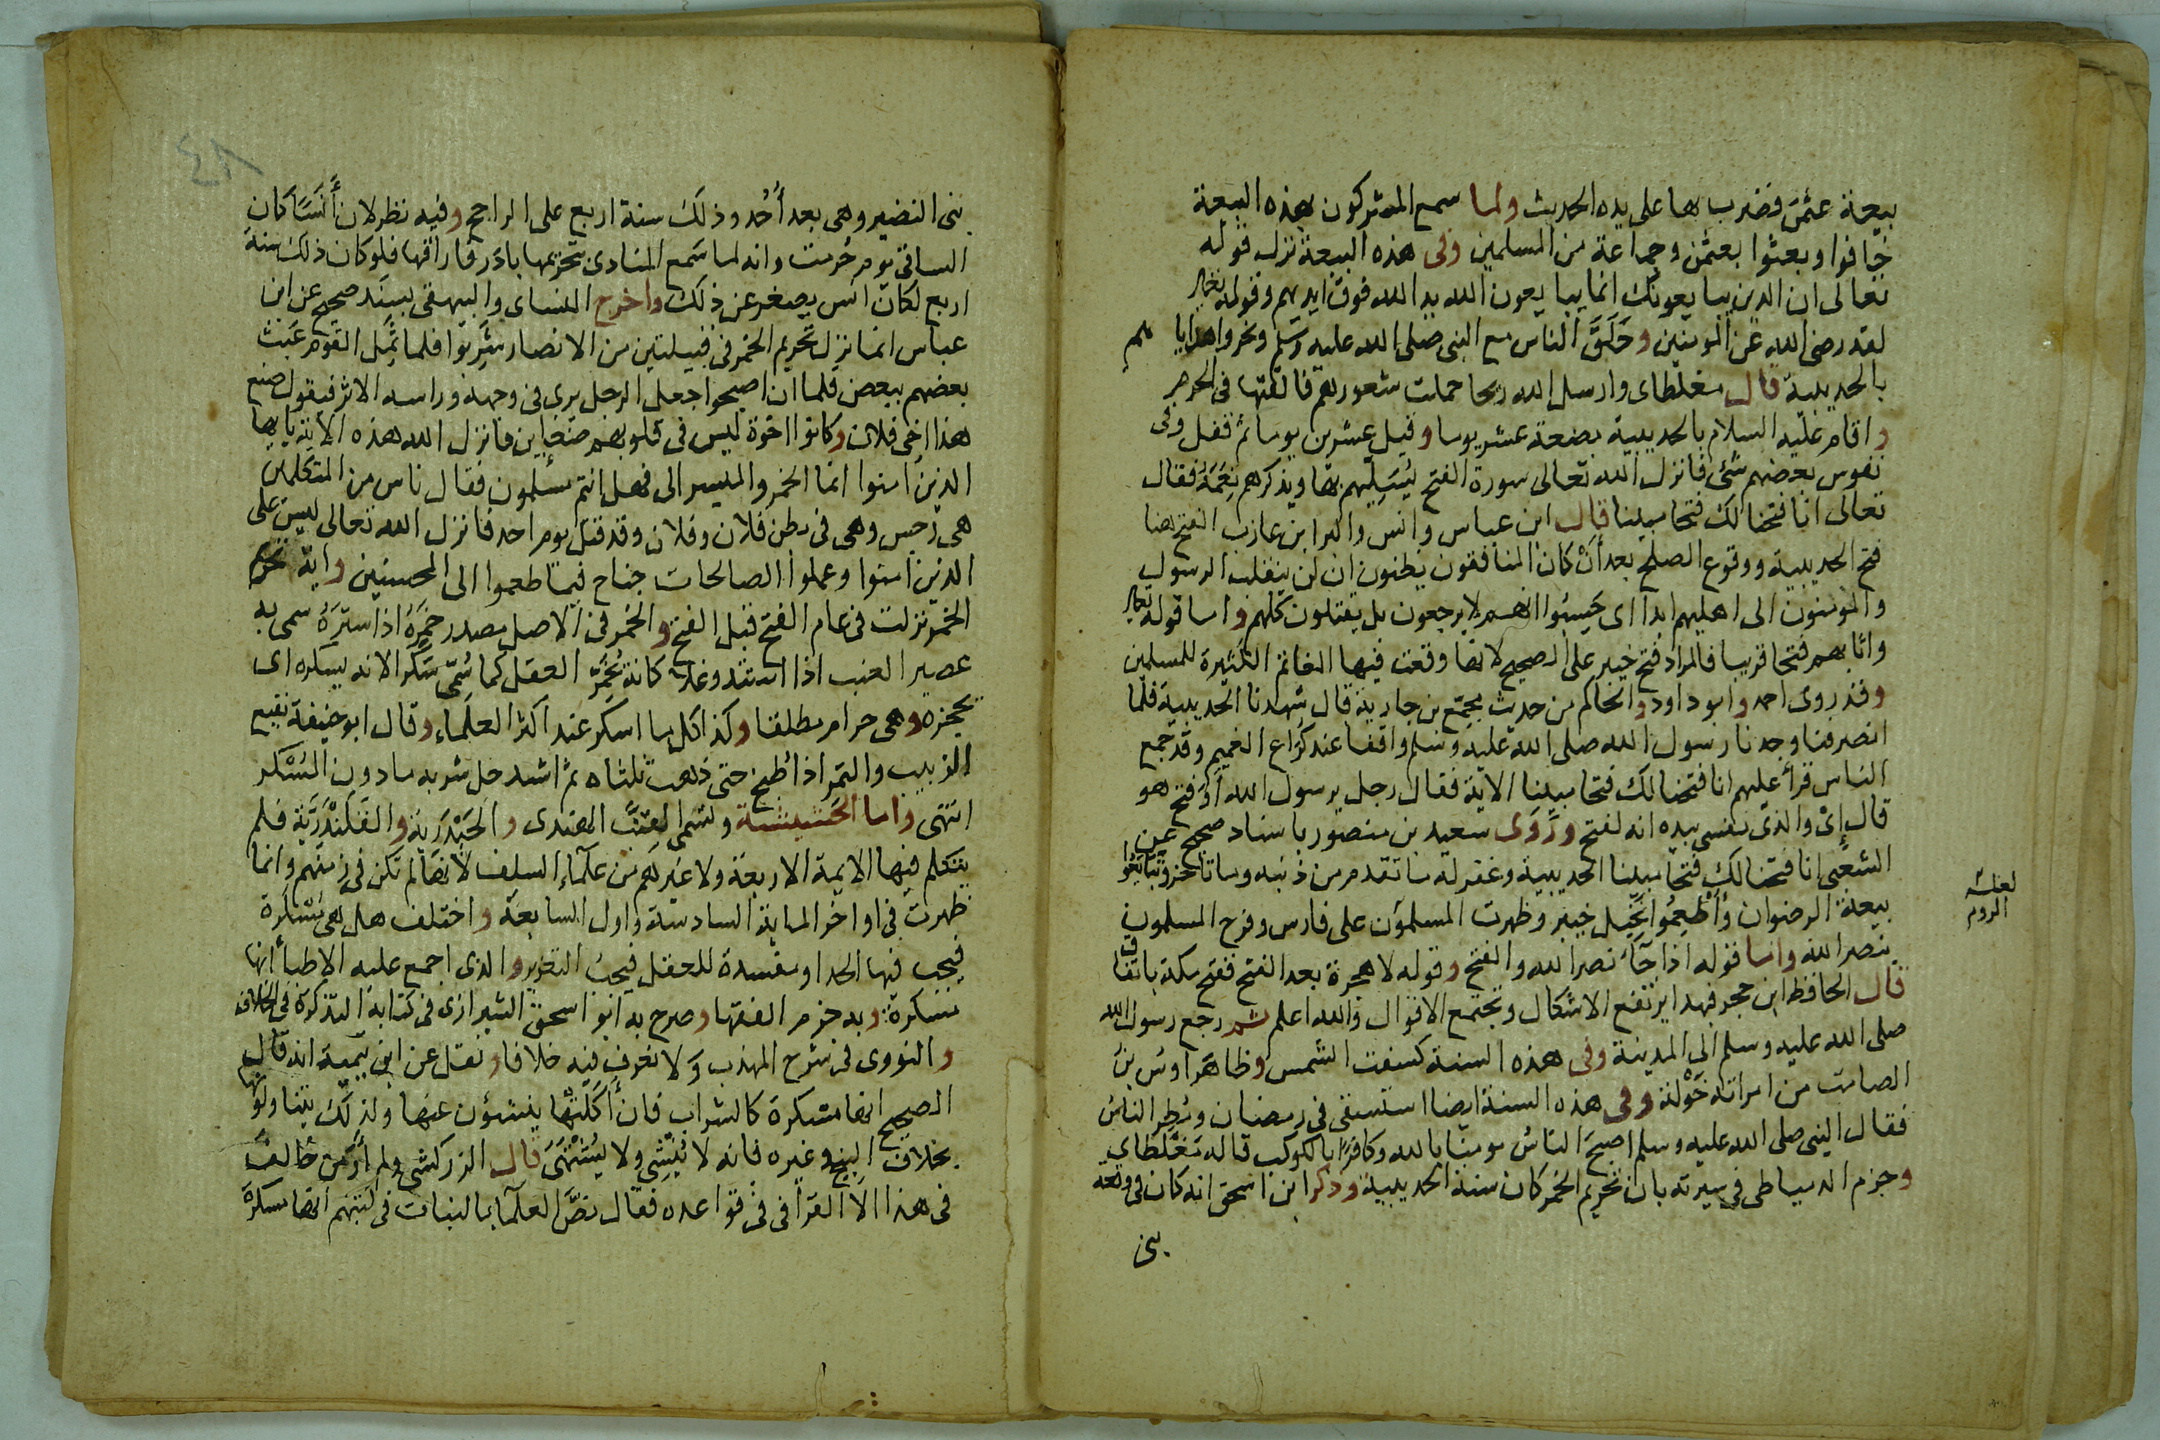 بيعة عثمن فضرب بها على يده الحديث ولما سمع المشركون بهذه البيعة
خافوا وبعثوا بعثمن وجماعة من المسلمين وفى هذه البيعة نزل قوله
تعالى ان الذين يبايعونك انما يبايعون الله يد الله فوق ايديهم وقوله تعالى
لقد رضى الله عن المومنين وحَلَقَ الناس مع النبى صلى الله عليه وسلم ونحروا هدايا هم
بالحديبية قال مغلطاى وارسل الله ريحا حملت شعورهم فالقتها فى الحرم
واقام عليه السلام بالحديبية بضعة عشر يوما وقيل عشرين يوما ثم قفل وفى
نفوس بعضهم شئ فانزل الله تعالى سورة الفتح يُسَلِّيهم بها ويذكرهم نِعَمَهُ فقال
تعالى انا فتحنا لك فتحا مبينا قال ابن عباس وانس والبرا بن عازب الفتح هنا
فتح الحديبية ووقوع الصلح بعد أن كان المنافقون يظنون ان لن ينقلب الرسول
والمؤمنون الى اهليهم ابدا اى حَسِبُوا انهم لا يرجعون بل يقتلون كلهم واما قوله تعالى
واثابهم فتحا قريبا فالمراد فتح خيبر على الصحيح لانها وقعت فيها المغانم الكثيرة للمسلمين
وقد روى احمد وابو داود والحاكم من حديث مجمّع بن جارية قال شهدنا الحديبية فلما
انصرفنا وجدنا رسول الله صلى الله عليه وسلم واقفا عند كُرَاع الغميم وقد جمع
الناس قرأ عليهم انا فتحنا لك فتحا مبينا الاية فقال رجل يرسول الله أوَ فتح هو
قال إىْ والذى نفسى بيده انه لفتح ورَوَى سعيد بن منصور باسناد صحيح عن
الشعبى انا فتحنا لك فتحا مبينا الحديبية وغفر له ما تقدم من ذنبه وما تاخر وتبايَعُوا
بيعة الرضوان وأُطْعِمُوا نَخِيل خيبر وظهرت المسلمون على فارس وفرح المسلمون
بنصر الله واما قوله اذا جآء نصر الله والفتح وقوله لا هجرة بعد الفتح ففتح مكة باتفاق
قال الحافظ ابن حجر فبهذا يرتفع الاشكال وتجتمع الاقوال والله اعلم ثم رجع رسول الله
صلى الله عليه وسلم الى المدينة وفى هذه السنة كسفت الشمس وظاهر اوس بن
الصامت من امراته خَوْلة وفى هذه السنة ايضا استسقى فى رمضان ومُطِر الناسُ
فقال النبى صلى الله عليه وسلم اصبح النّاسُ مومنًا بالله وكافرًا بالكوكب قاله مَغلَطاى
وجزم الدمياطى فى سيرته بان تحريم الخمر كان سنة الحديبية وذكر ابن اسحق انه كان فى وقعة
بنى
لغلبة
الروم
٤٨
بنى النضير وهى بعد أُحُد وذلك سنة اربع على الراجح وفيه نظر لان أَنَسًا كان
الساقى يوم حُرِمت وانه لما سَمع المنادى بتحريمها بادَر فاراقها فلو كان ذلك سنة
اربع لكان انس يصغر عن ذلك واخرج النساى والبيهقى بسند صحيح عن ابن
عباس انما نزل تحريم الخمر فى قبيلتين من الانصار شَرِبُوا فلما ثَمِل القوم عَبَث
بعضهم ببعض فلما ان اصبحوا جعل الرجل يرى فى وجهه وراسه الاثر فيقول صنع
هذا اخى فلان وكانوا اخوة ليس فى قلوبهم ضغاين فانزل الله هذه الاية يايها
الذين امنوا انما الخمر والميسر الى فهل انتم مسلمون فقال ناس من المتكلمين
هى رجس وهى فى بطن فلان وفلان وقد قتل يوم احد فانزل الله تعالى ليس على
الذين امنوا وعملوا الصالحات جناح فيما طعموا الى المحسنين واية تحريم
الخمر نزلت فى عام الفتح قبل الفتح والخمر فى الاصل مصدر خمرَهُ اذا سترَهُ سمى به
عصير العنب اذا اشتد وغلا كانه يُخَمِّرُ العقل كما سُمّى سَكَرا لانه يسكره اى
يحجزه وهى حرام مطلقا وكذا كل ما اسكر عند اكثر العلماء وقال ابو حنيفة نقيع
الزبيب والتمر اذا طُبخ حتى ذهب ثلثاه ثم اشتد حل شربه ما دون السُكر
انتهى واما الحَشيشة وتسمى القِنَّب الهندى والحَيْدَرية والقَلَنْدَرية فلم
يتكلم فيها الايمة الاربعة ولا غيرهم من علمآء السلف لانها لم تكن فى زمنهم وانما
ظهرت فى اواخر المائة السادسة واول السابعة واختلف هل هى مُسْكرة
فيجب فيها الحد او مفسدة للعقل فيجب التعزير والذى اجمع عليه الاطبأ انها
مسكرة وبه جزم الفقها وصرح به ابو اسحق الشيرازى فى كتابه التذكرة فى الخلاف
والنووى فى شرح المهذب وَلا نعرف فيه خلافا ونقل عن ابن تيمية انه قال
الصحيح انها مسكرة كالشراب فان أَكَلَتَها ينشؤن عنها ولذلك يتناولونها
بخلاف البنج وغيره فانه لا يُنْشِى ولا يُشْتَهَىَ قال الزركشى ولم أرَ من خالف
فى هذا الا القرافى فى قواعده فقال نصَّ العلمآ بالنبات فى كتبهم انها مسكرة